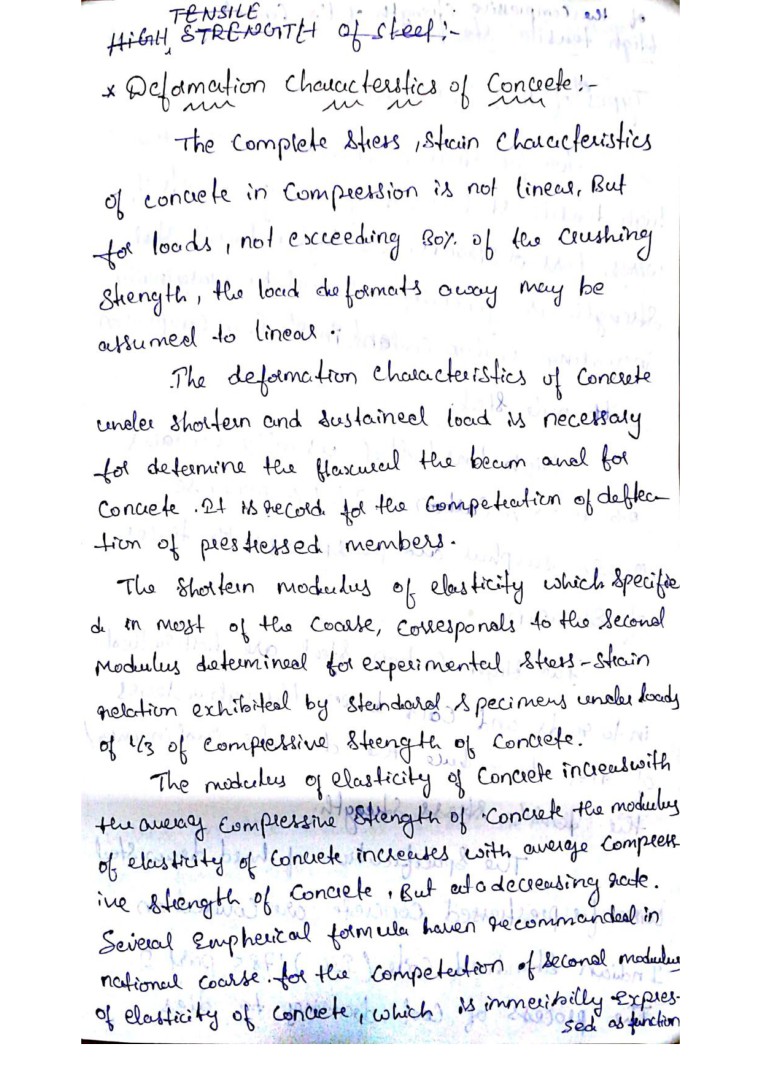 TENSILE
HIGH, STRENGTH of steel:-
* Deformation Characterstics of Concrete:-
The Complete stress, strain characteristics
of concrete in Compression is not linear, But
for loads, not exceeding 30% of the crushing
strength, the load deformats away may be
assumed to linear.
The deformation characteristics of Concrete
under shortern and sustained load is necessary
for determine the flaxural the beam and for
Concrete. It is record for the Competration of deflec-
tion of prestressed members.
The Shortern modulus of elasticity which specifie
d in most of the coarse, corresponds to the second
Modulus determined for experimental stress-strain
relation exhibited by standard specimens under loads
of 1/3 of compressive strength of Concrete.
The modulus of elasticity of Concrete increas with
the averag compressive strength of Concrete the modulus
of elasticity of Concrete increases with average compress
ive strength of Concrete, But at a decreasing rate.
Several Empherical formula haven recommanded in
national coarse. for the competetion of second modulus
of elasticity of Concrete, which is expres-
sed as function